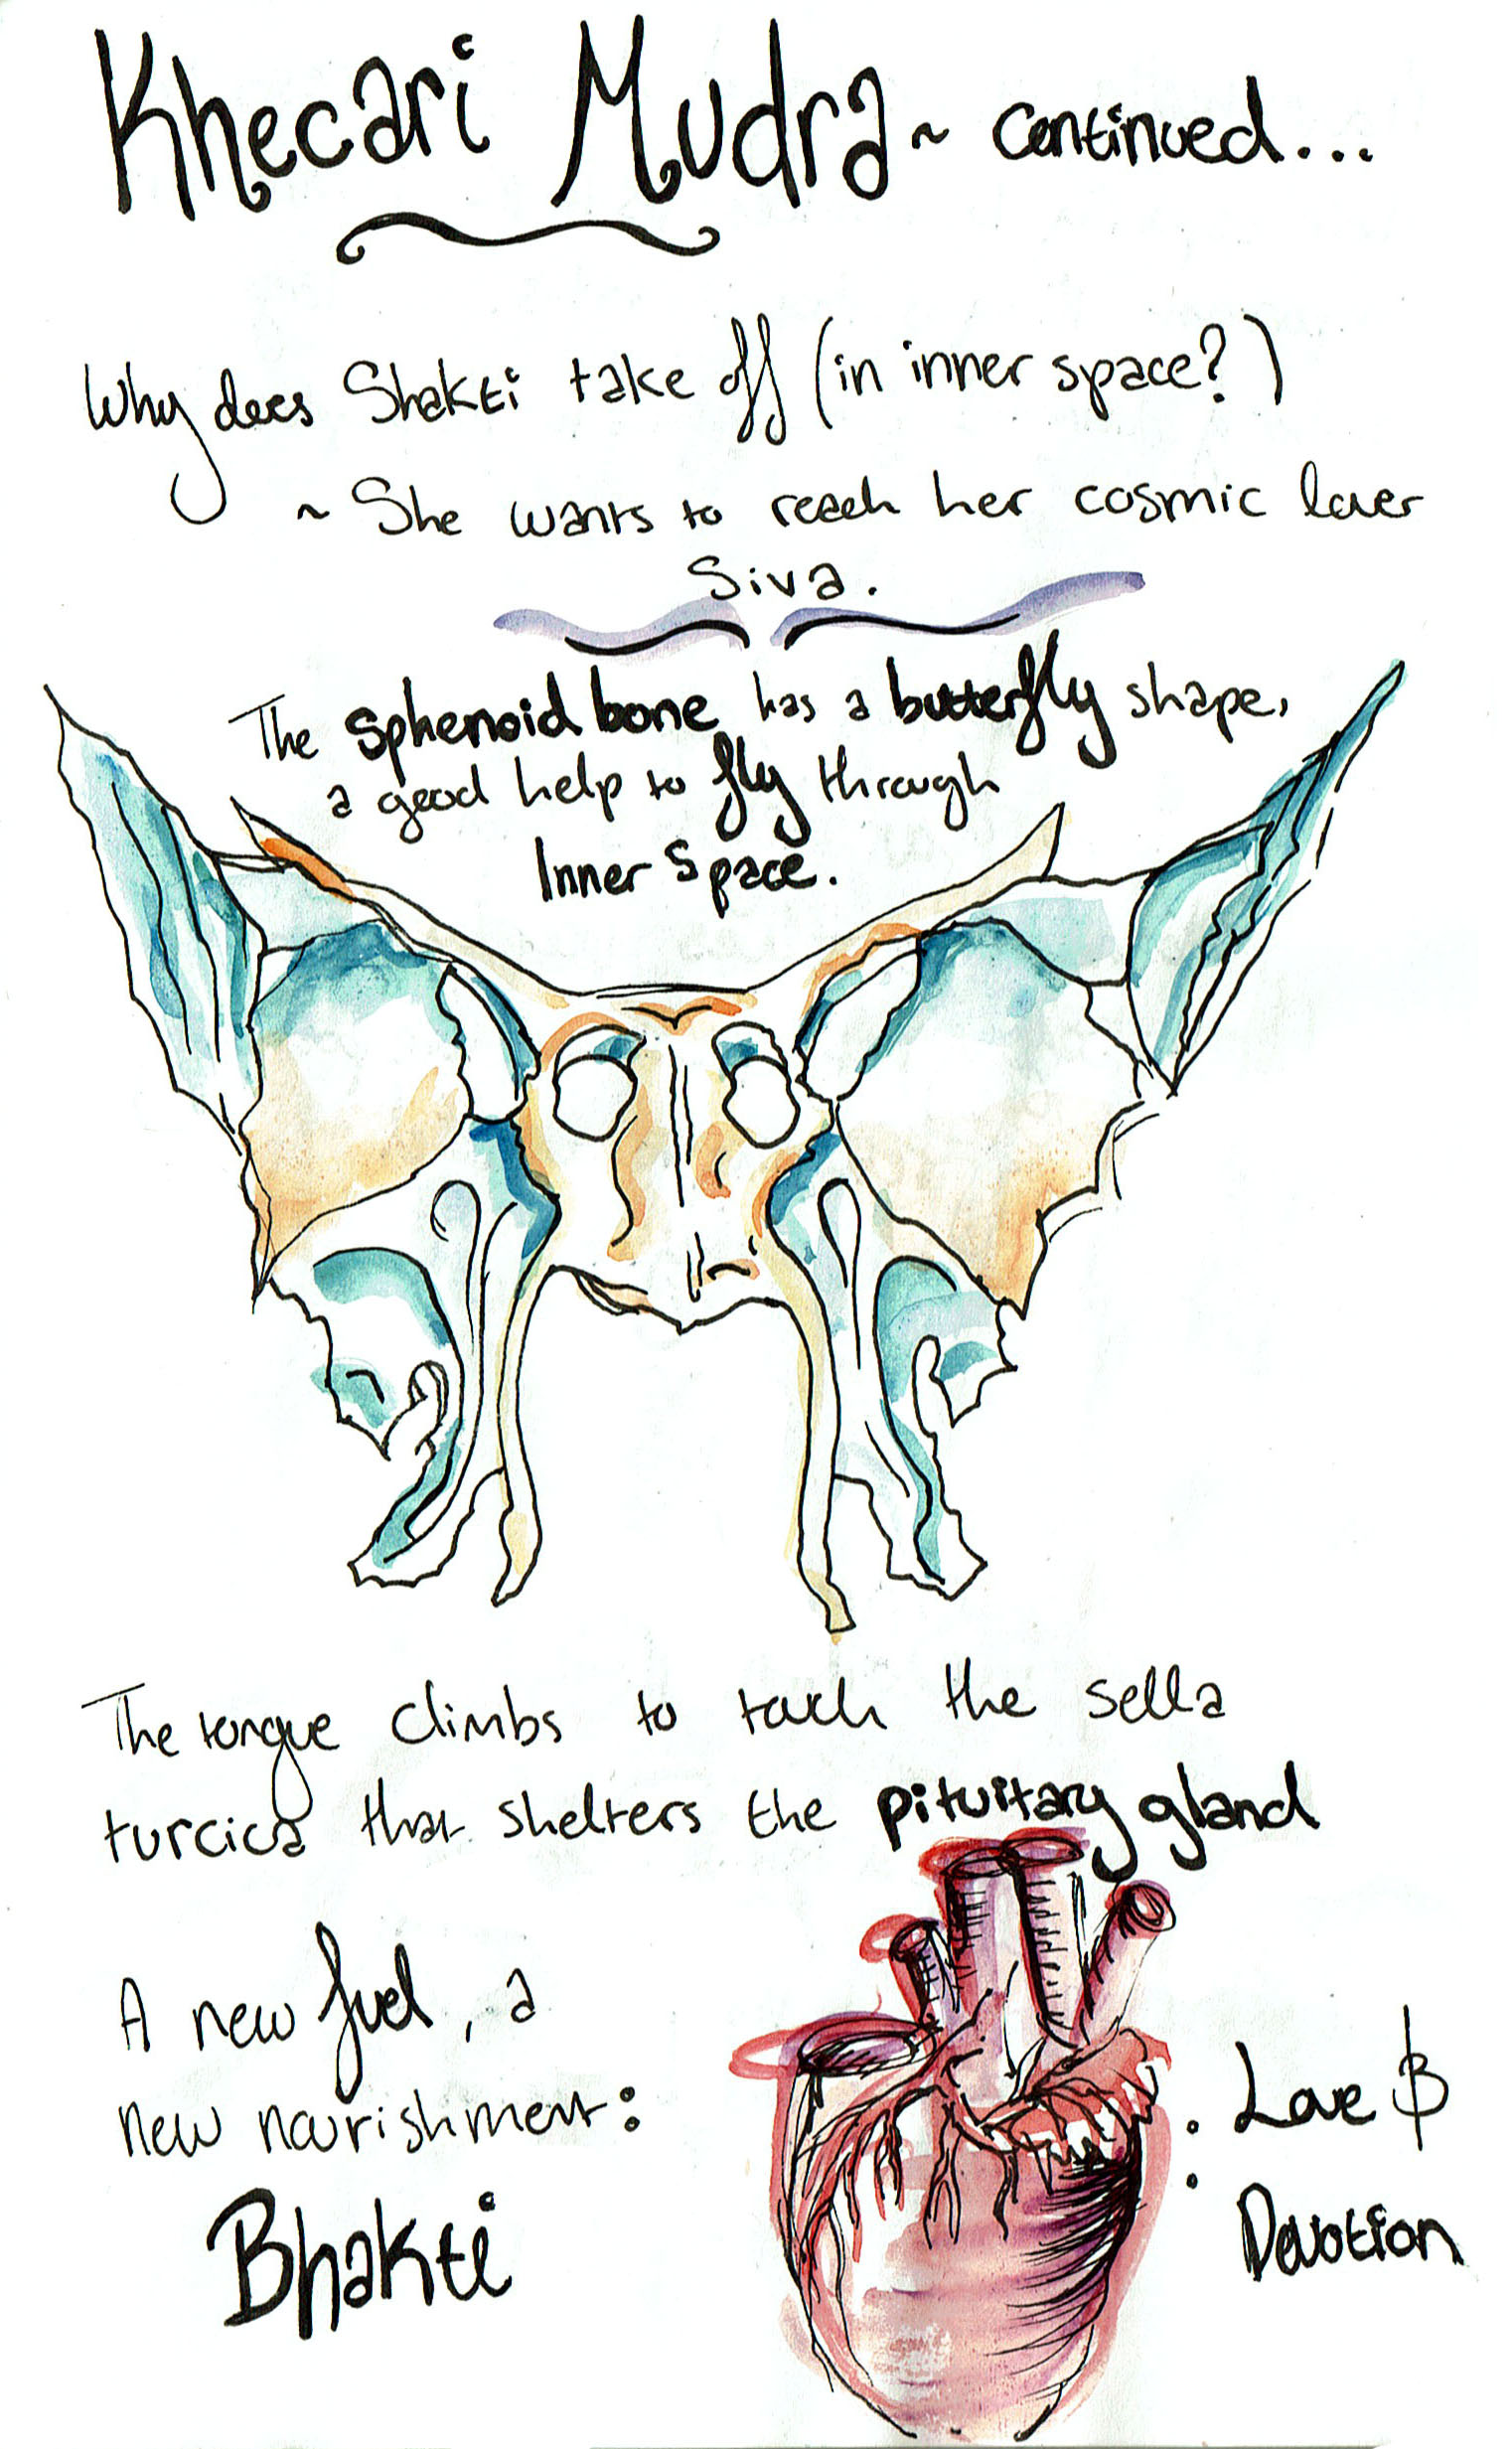 Khecari Mudra ~ continued...
Why does Shakti take off (in inner space?)
~ She wants to reach her cosmic lover
Siva.
The sphenoid bone has a butterfly shape,
a good help to fly through
Inner Space.
The tongue climbs to touch the sella
turcica that shelters the pituitary gland
A new fuel, a
new nourishment:
Bhakti
: Love &
Devotion